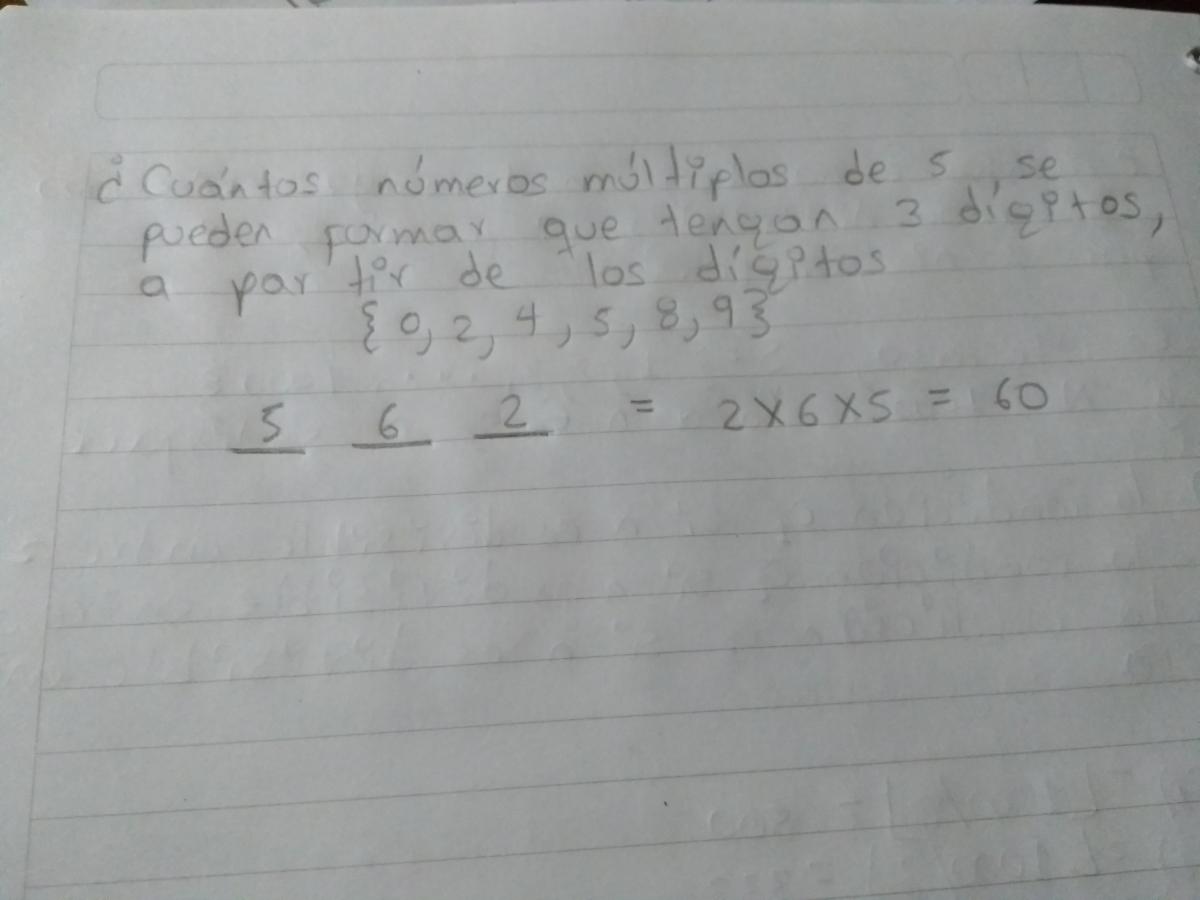 ¿Cuántos números múltiplos de 5 se
pueden formar que tengan 3 dígitos,
a partir de los dígitos
{0, 2, 4, 5, 8, 9}
5 6 2 = 2×6×5 = 60